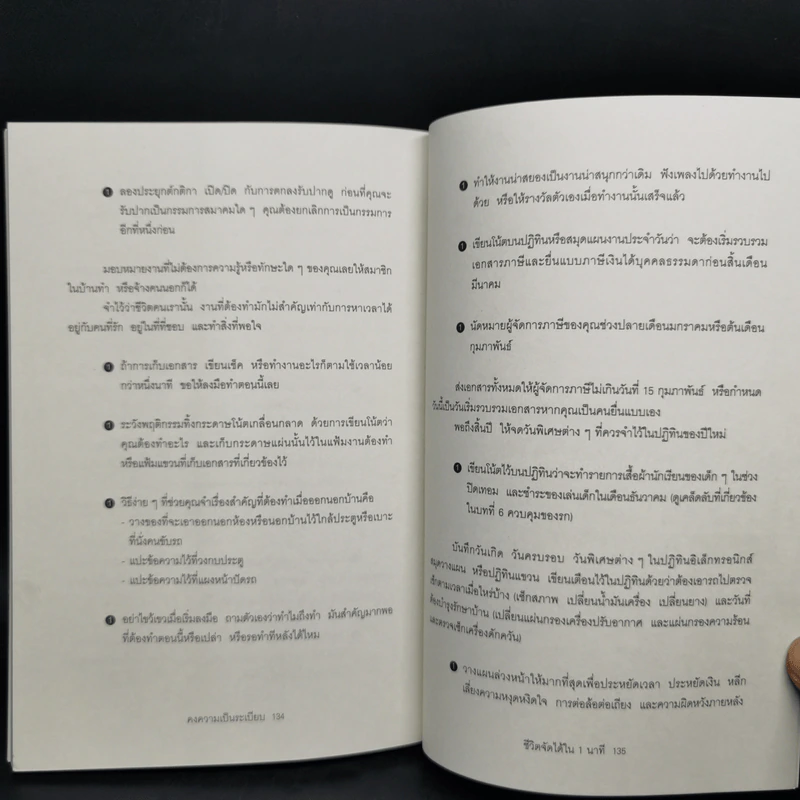 ❶ ลองประยุกต์กติกา เปิด/ปิด กับการตกลงรับปากดู ก่อนที่คุณจะ
รับปากเป็นกรรมการสมาคมใด ๆ คุณต้องยกเลิกการเป็นกรรมการ
อีกที่หนึ่งก่อน
มอบหมายงานที่ไม่ต้องการความรู้หรือทักษะใด ๆ ของคุณเลยให้สมาชิก
ในบ้านทำ หรือจ้างคนนอกก็ได้
จำไว้ว่าชีวิตคนเรานั้น งานที่ต้องทำมักไม่สำคัญเท่ากับการหาเวลาได้
อยู่กับคนที่รัก อยู่ในที่ที่ชอบ และทำสิ่งที่พอใจ
❶ ถ้าการเก็บเอกสาร เขียนเช็ค หรือทำงานอะไรก็ตามใช้เวลาน้อย
กว่าหนึ่งนาที ขอให้ลงมือทำตอนนี้เลย
❶ ระวังพฤติกรรมทิ้งกระดาษโน้ตเกลื่อนกลาด ด้วยการเขียนโน้ตว่า
คุณต้องทำอะไร และเก็บกระดาษแผ่นนั้นไว้ในแฟ้มงานต้องทำ
หรือแฟ้มแขวนที่เก็บเอกสารที่เกี่ยวข้องไว้
❶ วิธีง่าย ๆ ที่ช่วยคุณจำเรื่องสำคัญที่ต้องทำเมื่อออกนอกบ้านคือ
- วางของที่จะเอาออกนอกห้องหรือนอกบ้านไว้ใกล้ประตูหรือเบาะ
ที่นั่งคนขับรถ
- แปะข้อความไว้ที่วงกบประตู
- แปะข้อความไว้ที่แผงหน้าปัดรถ
❶ อย่าไขว้เขวเมื่อเริ่มลงมือ ถามตัวเองว่าทำไมถึงทำ มันสำคัญมากพอ
ที่ต้องทำตอนนี้หรือเปล่า หรือรอทำทีหลังได้ไหม
คงความเป็นระเบียบ 134
❶ ทำให้งานน่าสยองเป็นงานน่าสนุกกว่าเดิม ฟังเพลงไปด้วยทำงานไป
ด้วย หรือให้รางวัลตัวเองเมื่อทำงานนั้นเสร็จแล้ว
❶ เขียนโน้ตบนปฏิทินหรือสมุดแผนงานประจำวันว่า จะต้องเริ่มรวบรวม
เอกสารภาษีและยื่นแบบภาษีเงินได้บุคคลธรรมดาก่อนสิ้นเดือน
มีนาคม
❶ นัดหมายผู้จัดการภาษีของคุณช่วงปลายเดือนมกราคมหรือต้นเดือน
กุมภาพันธ์
ส่งเอกสารทั้งหมดให้ผู้จัดการภาษีไม่เกินวันที่ 15 กุมภาพันธ์ หรือกำหนด
วันนี้เป็นวันเริ่มรวบรวมเอกสารหากคุณเป็นคนยื่นแบบเอง
พอถึงสิ้นปี ให้จดวันพิเศษต่าง ๆ ที่ควรจำไว้ในปฏิทินของปีใหม่
❶ เขียนโน้ตไว้บนปฏิทินว่าจะทำรายการเสื้อผ้านักเรียนของเด็ก ๆ ในช่วง
ปิดเทอม และชำระของเล่นเด็กในเดือนธันวาคม (ดูเคล็ดลับที่เกี่ยวข้อง
ในบทที่ 6 ควบคุมของรก)
บันทึกวันเกิด วันครบรอบ วันพิเศษต่าง ๆ ในปฏิทินอิเล็กทรอนิกส์
สมุดวางแผน หรือปฏิทินแขวน เขียนเตือนไว้ในปฏิทินด้วยว่าต้องเอารถไปตรวจ
เช็กตามเวลาเมื่อไหร่บ้าง (เช็กสภาพ เปลี่ยนน้ำมันเครื่อง เปลี่ยนยาง) และวันที่
ต้องบำรุงรักษาบ้าน (เปลี่ยนแผ่นกรองเครื่องปรับอากาศ และแผ่นกรองความร้อน
และตรวจเช็กเครื่องดักควัน)
❶ วางแผนล่วงหน้าให้มากที่สุดเพื่อประหยัดเวลา ประหยัดเงิน หลีก
เลี่ยงความหงุดหงิดใจ การต่อล้อต่อเถียง และความผิดหวังภายหลัง
ชีวิตจัดได้ใน 1 นาที 135